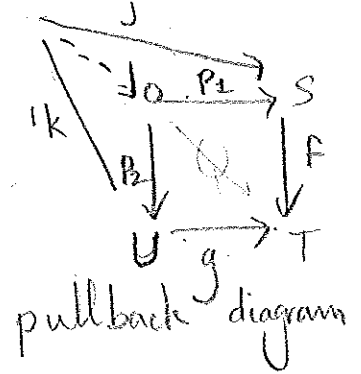 J
P1
O S
k
P2 F
U g T
pullback diagram